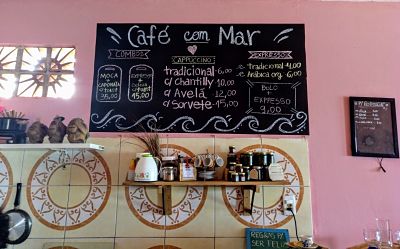 Café com Mar
COMBOS
MOCA
+
CAPONATA
c/TOAST
25,00
EXPRESSO
+
c/TOAST
15,00
CAPPUCCINO
tradicional - 6,00
c/ chantilly 10,00
d'Avelã 12,00
d/ Sorvete - 15,00
EXPRESSO
tradicional 4,00
Arábica org. 6,00
BOLO
+
EXPRESSO
9,00
REGRAS P/
SER FELIZ